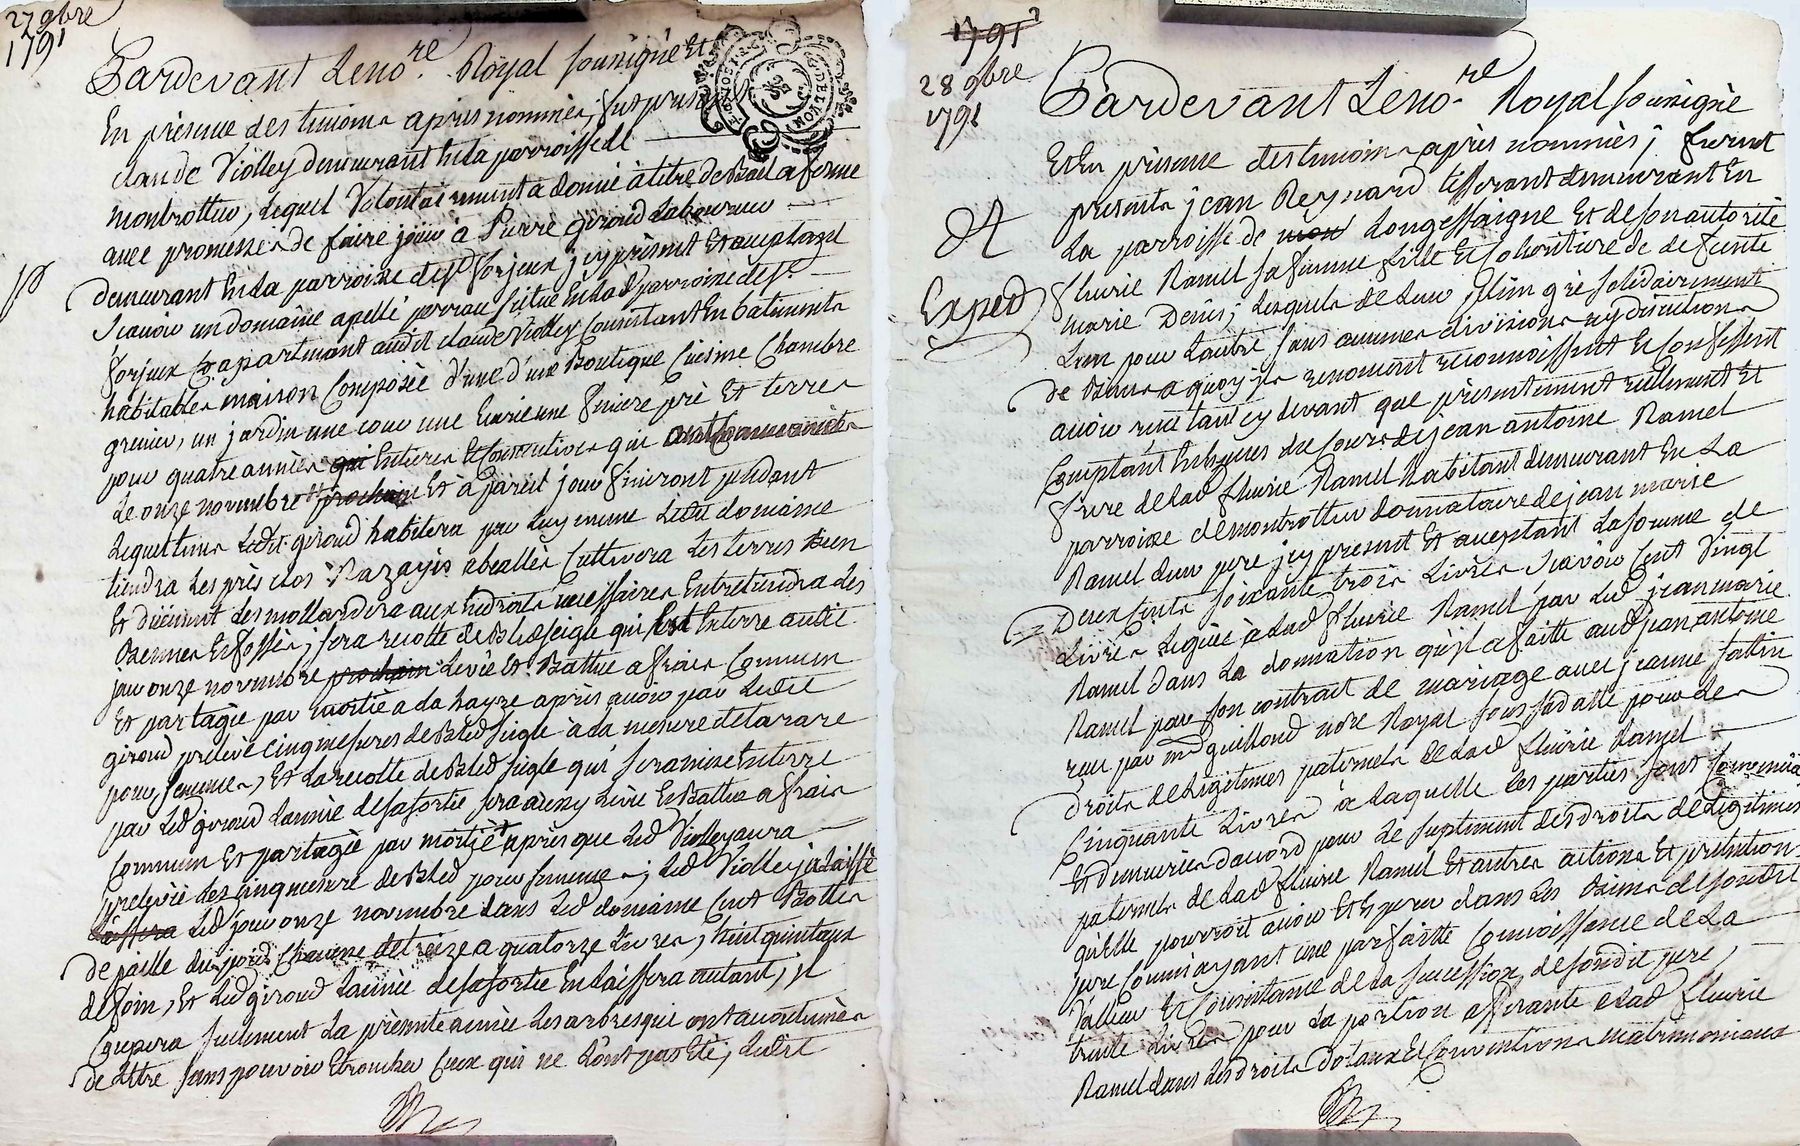 27 9bre
1791
Pardevant Leno.re Royal soussigné Et
En présence des temoins après nommés, fut présent
claude Viölley demeurant En la parroisse de
montrottier, Lequel Volontairement a donné à titre de Bail a ferme
avec promesse de faire jouir à Pierre giroud Laboureur
demeurant En la parroisse de st forjeux jcy présent Et aceptant
Scavoir un domaine apellé perrau situé En lad parroisse de st
forjeux Et apartenant audit claude Violley Consistant En batiments
habitables maison Composée d'une d'une Boutique Cuisine Chambre
grenier, un jardin une cour une Ecurie une feniere pré Et terres
pour quatre années qui Entieres Et Consecutives qui
Le onze novembre prochain Et à pareil jour finiront pendant
Lequel tems Ledit giroud habitera par Luy meme Ledit domaine
tiendra Les prés clos Razayis abeallés Cultivera Les terres Bien
Et düement Les mollardera aux Endroits necessaires Entretiendra Les
Bennes Et fossés, sera recolte de Bled seigle qui Est Enterre audit
jour onze novembre prochain Levée Et Battue a frais Commun
Et partagée par moitié a La hayze après avoir par Ledit
giroud prélevé cinq mesures de Bled seigle à La mesure de tarare
pour semence, Et La recolte de Bled seigle qui sera mise Enterre
par Led giroud L'année de sa sortie sera aussy Levée Et Battue a frais
Commun Et partagée par moitié après que Led Violley aura
prelevée Les cinq mesure de Bled pour semence, Led Violley a laissé
Laissera Led jour onze novembre dans Led domaine Cent Bottes
de paille du poid Chacune de treize a quatorze Livres, huit quintaux
de foin, Et Led giroud L'année de sa sortie En laissera autant, jl
Coupera seulement La présente année Les arbres qui ont acoutumés
de L'etre sans pouvoir Etroncher Ceux qui ne L'ont pas Eté, Ledit
1791
28 9bre
1791
Exped
Pardevant Leno.re Royal soussigné
Et En présence des temoins après nommés, furent
présents jean Reynard tisserant demeurant En
La parroisse de mon Longessaigne Et de son autorité
fleurie Ramel sa femme fille Et Cohéritiere de defunte
marie Denis, Lesquels de Leur plein gré solidairement
L'un pour L'autre sans aucunes divisions ny discutions
de Biens a quoy jls renoncent reconnoissent Et Confessent
avoir reçu tant cy devant que présentement réellement Et
Comptant En Especes du Cours de jean antoine Ramel
frere de Lad fleurie Ramel habitant demeurant En La
parroisse de montrottier donnataire de jean marie
Ramel Leur pere jcy présent Et aceptant La somme de
Deux Cents soixante trois Livres Scavoir Cent Vingt
Livres Léguée à Lad fleurie Ramel par Led jean marie
Ramel dans La donnation qu'jl a faitte aud jean antoine
Ramel par son contrait de mariage avec jeanne fattin
reçu par me guilloud nore Royal sous sa datte pour Les
droits de Legitimes paternels de Lad fleurie Ramel
Cinquante Livres à Laquelle Les parties sont Convenües
Et demeurées d'acord pour Le suplément des droits de Legitimes
paternels de Lad fleurie Ramel Et autres actions Et prétentions
qu'elle pourroit avoir Et Esperer dans Les Biens de son dit
pere Commayant une parfaitte Connoissance de La
Valleur Et Consistance de La succession de son dit pere,
trente Livres pour La portion afferante a Lad fleurie
Ramel dans Les droits dotaux Et Conventions matrimoniaux